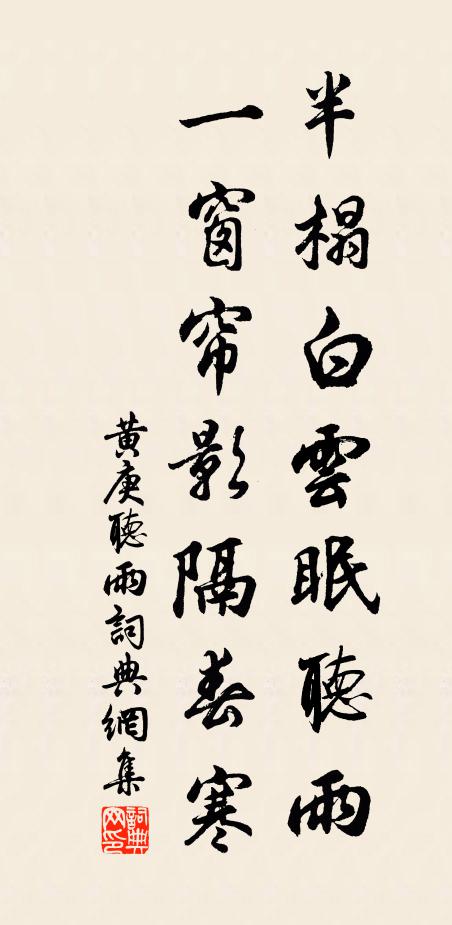 半榻白雲眠聽雨
一窗帘影隔春寒
黄庚聽雨詞典網集
詞典網印